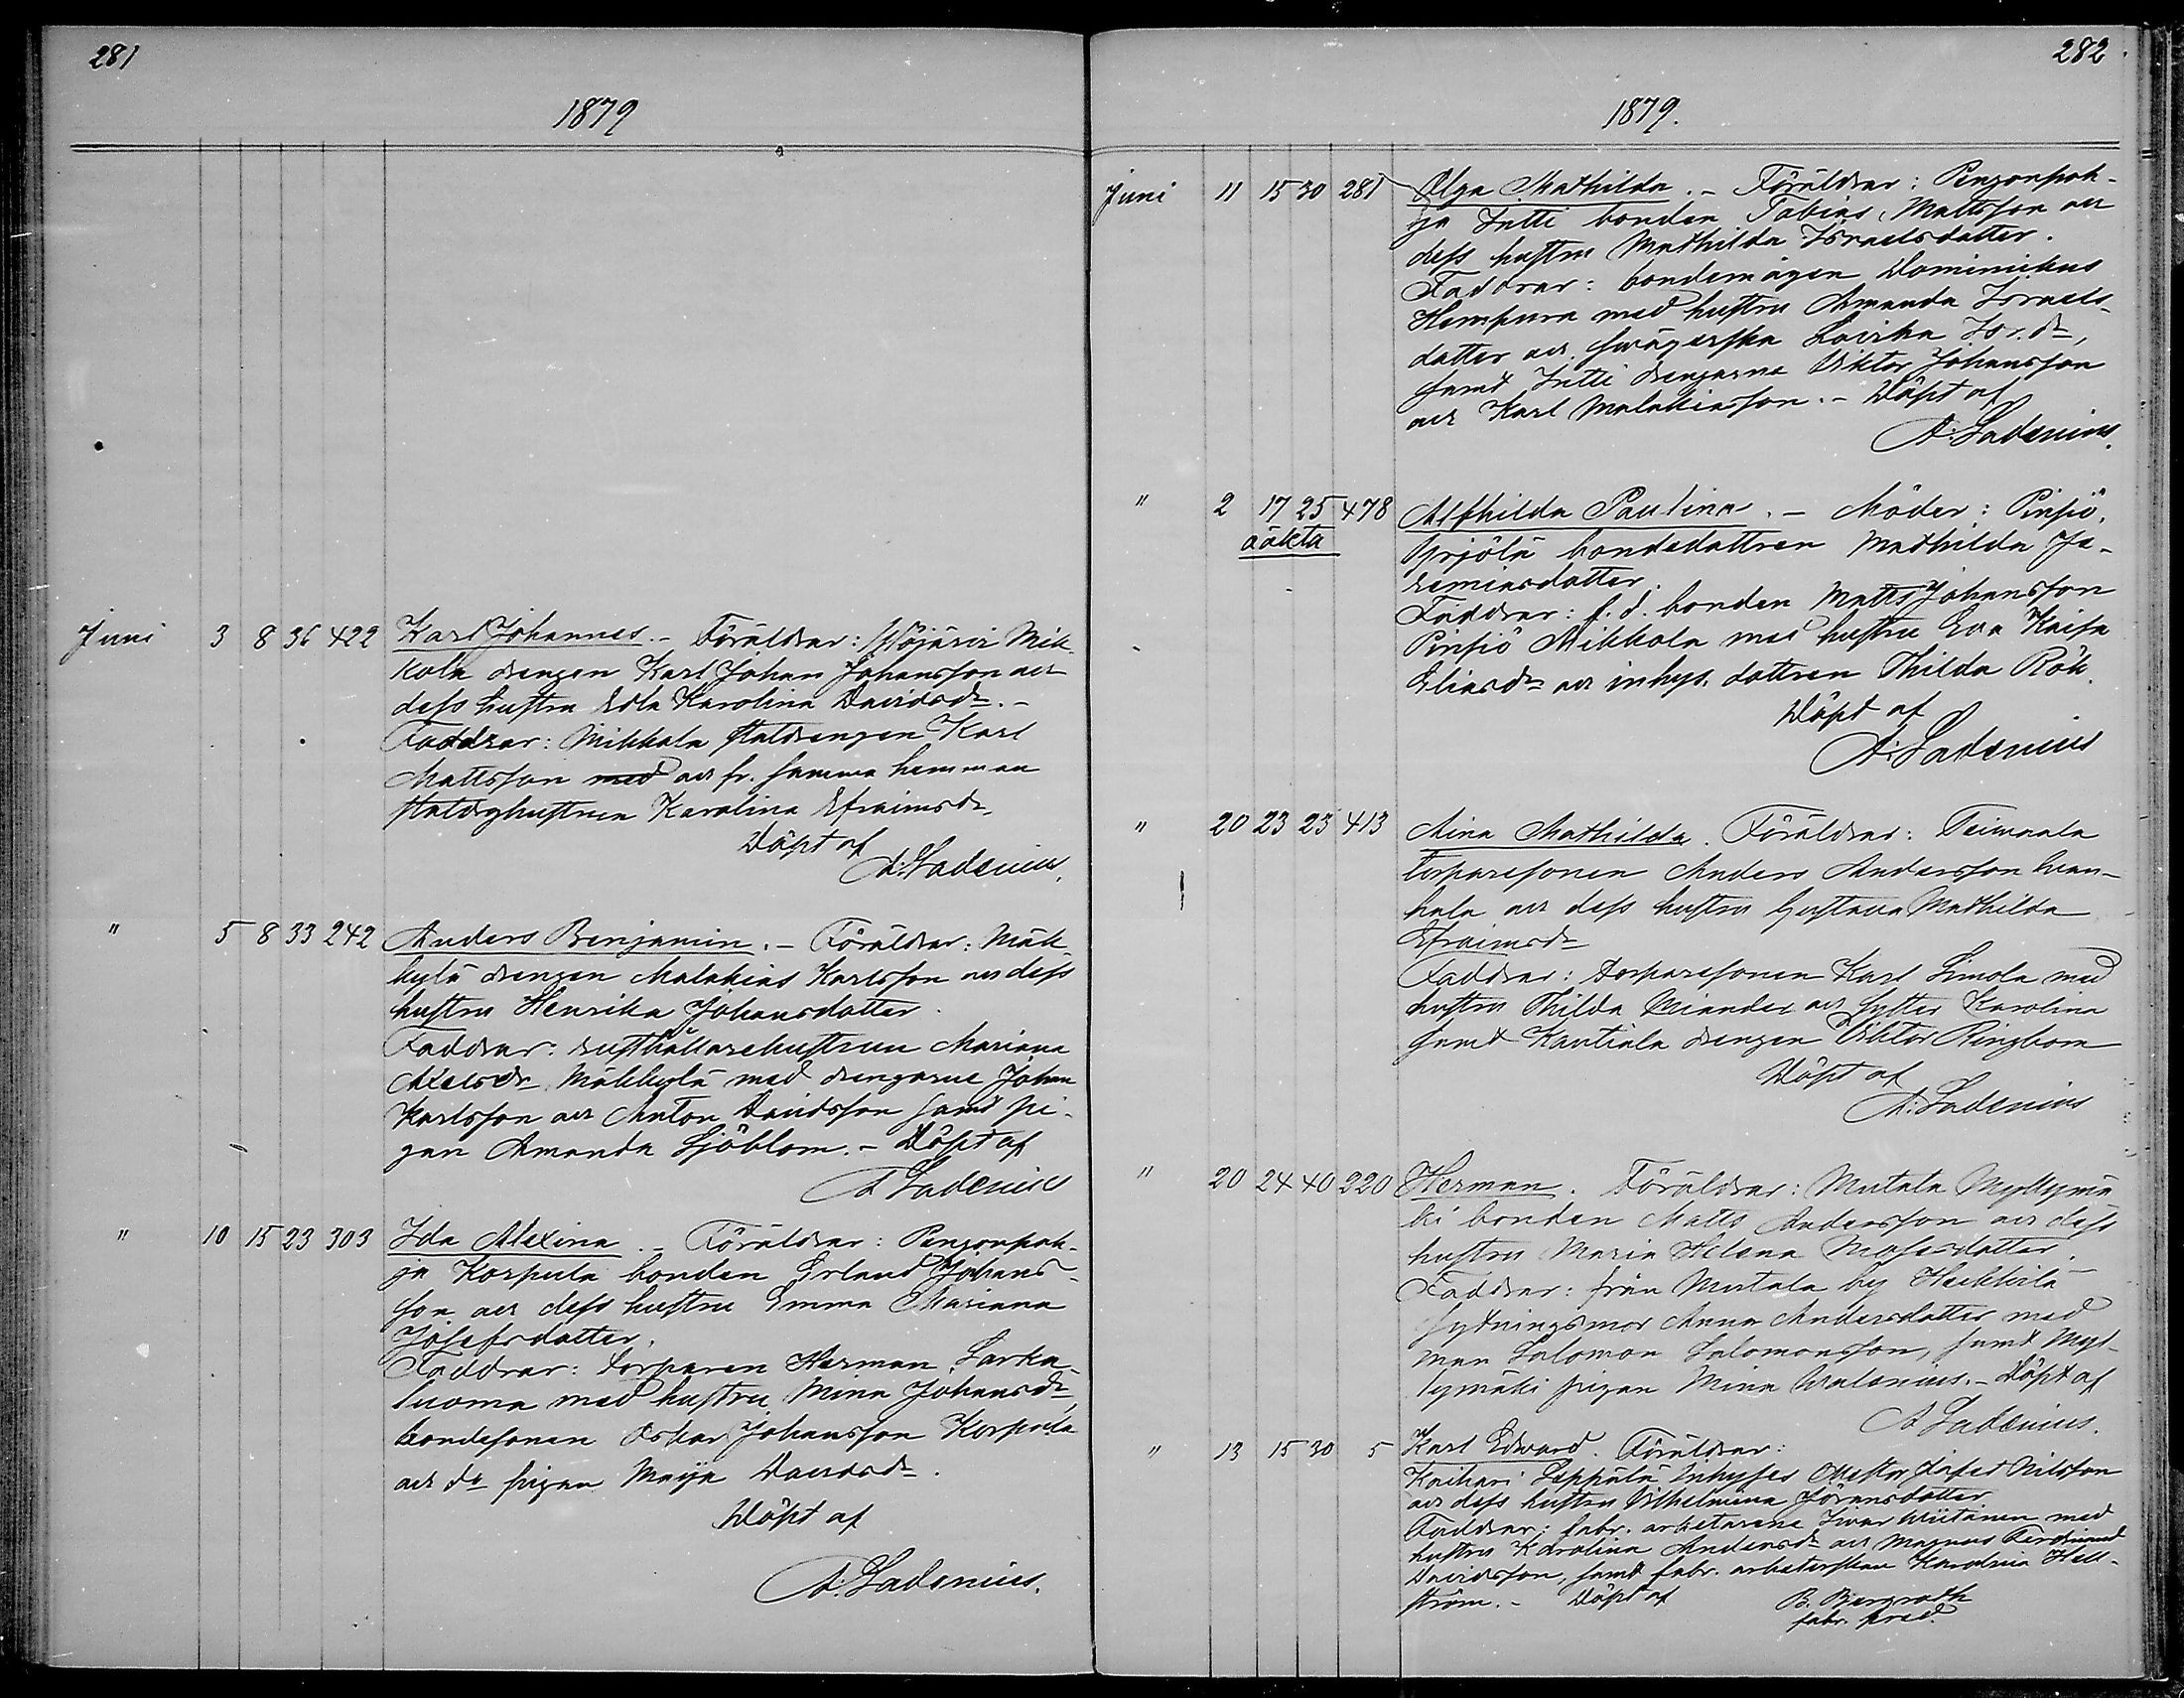 281
1879
Juni 3 8 36 422 Karl Johannes. - Föräldrar: Wöjärvi Mik-
kola drengen Karl Johan Johansson och
dess hustru Edla Karolina Davidsdr. -
Faddrar: Mikkola statdrengen Karl
Mattsson med och fr. samma hemman
statdrghustrun Karolina Efraimsdr.
Döpt af
A. Ladenius.
" 5 8 33 242 Anders Benjamin. - Föräldrar: Mäk-
kylä drengen Malakias Karlsson och dess
hustru Henrika Johansdotter.
Faddrar: rusthållarehustrun Mariana
Axelsdr Mäkkylä med drengarne Johan
Karlsson och Anton Davidsson samt pi-
gan Amanda Sjöblom. - Döpt af
A Ladenius
" 10 15 23 303 Ida Alexina. - Föräldrar: Penzonpoh-
ja Korpula bonden Erland Johans-
son och dess hustru Emma Mariana
Josefsdotter.
Faddrar: torparen Herman Sarka-
luoma med hustru Mina Johansdr,
bondesonen Oskar Johansson Korpula
och do pigan Maija Davidsdr.
Döpt af
A. Ladenius.
282.
1879.
Juni 11 15 30 281 Olga Mathilda. - Föräldrar: Penzonpoh-
ja Jutti bonden Tobias Mattsson och
dess hustru Mathilda Israelsdotter.
Faddrar: bondemågen Dominikus
Hempura med hustru Amanda Israels-
dotter och swägerska Lovisa Isr.dr,
samt Jutti drengarna Viktor Johansson
och Karl Malakiasson. - Döpt af
A. Ladenius.
" 2 17 25 478 Alfhilda Paulina. - Moder: Pinsiö,
oäkta
Yrjölä bondedottren Mathilda Je-
remiasdotter.
Faddrar: f. d. bonden Matts Johansson
Pinsiö Mikkola med hustru Eva Kaisa
Eliasdr och inhys. dottren Thilda Rök.
Döpt af
A. Ladenius
" 20 23 23 413 Aina Mathilda. Föräldrar: Teimaala
torparesonen Anders Andersson
och dess hustru Gustava Mathilda
Efraimsdr
Faddrar: torparesonen Karl Simola med
hustru Thilda och syster Karolina
samt Kantiala drengen Viktor Ringbom
Döpt af
A. Ladenius
" 20 24 40 220 Herman. Föräldrar: Mutala Myllymä-
ki bonden Matts Andersson och dess
hustru Maria Helena Mosesdotter.
Faddrar: från Mutala by Heikkilä
sytningsmor Anna Andersdotter med
man Salomon Salomonsson, samt Myl-
lymäki pigan Mina Walenius. - Döpt af
A Ladenius.
" 13 15 30 5 Karl Edvard. Föräldrar:
Kaihari Seppälä Inhyses Nilsson
och dess hustru Vilhelmina Göransdotter
Faddrar: fabr. arbetarene Iwar Wiitanen med
hustru Karolina Andersdr och Magnus Ferdinand
Davidsson, samt fabr. arbeterskan Karolina Hell-
ström. - Döpt af B. Bergroth
fabr. pred.